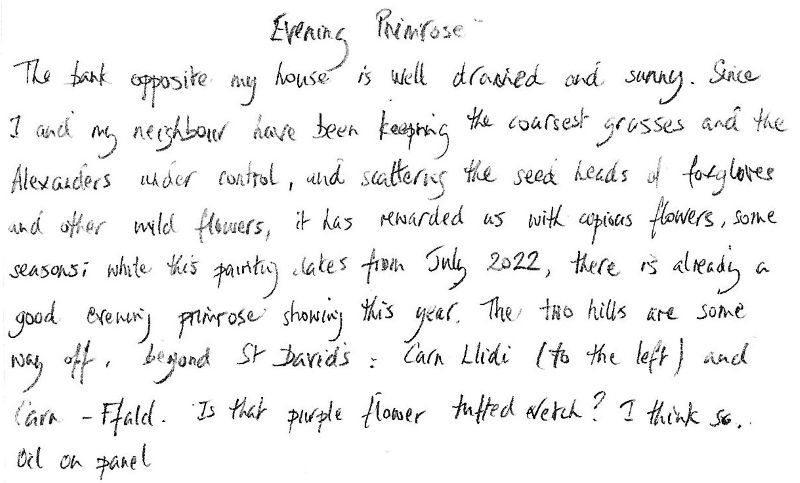 Evening Primrose
The bank opposite my house is well drained and sunny. Since
I and my neighbour have been keeping the coarsest grasses and the
Alexanders under control, and scattering the seed heads of foxgloves
and other wild flowers, it has rewarded us with copious flowers, some
seasons; while this painting dates from July 2022, there is already a
good evening primrose showing this year. The two hills are some
way off, beyond St Davids: Carn Llidi (to the left) and
Carn-Ffald. Is that purple flower tufted vetch? I think so.
Oil on panel